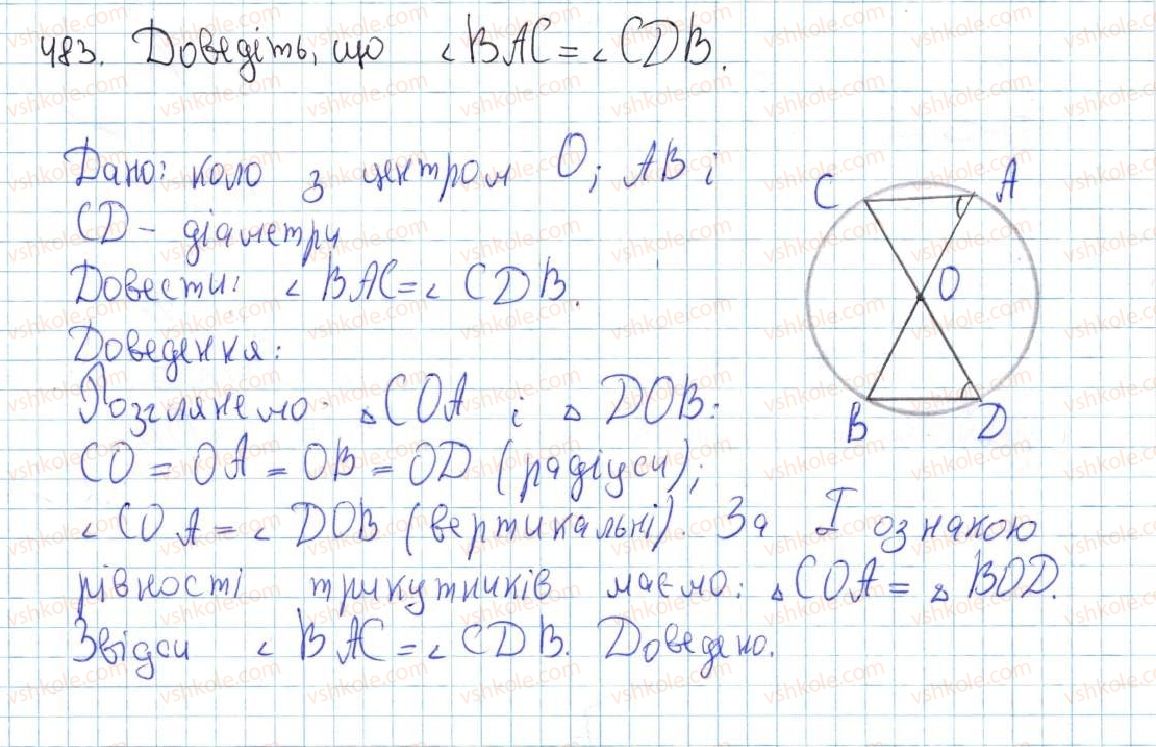 483. Доведіть, що ∠BAC = ∠CDB.
Дано: коло з центром O; AB і
CD – діаметри
Довести: ∠BAC = ∠CDB.
Доведення:
Розглянемо △COA і △DOB:
CO = OA = OB = OD (радіуси);
∠COA = ∠DOB (вертикальні). За I ознакою
рівності трикутників маємо: △COA = △BOD.
Звідси ∠BAC = ∠CDB. Доведено.
C A
O
B D
vshkole.com